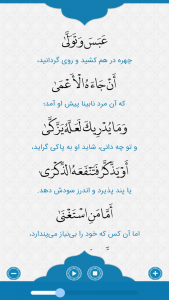 عَبَسَ وَتَوَلَّىٰ
چهره در هم کشید و روی گردانید،
أَنْ جَاءَهُ الْأَعْمَىٰ
که آن مرد نابینا پیش او آمد؛
وَمَا يُدْرِيكَ لَعَلَّهُ يَزَّكَّىٰ
و تو چه دانی، شاید او به پاکی گراید،
أَوْ يَذَّكَّرُ فَتَنْفَعَهُ الذِّكْرَىٰ
یا پند پذیرد و اندرز سودش دهد.
أَمَّا مَنِ اسْتَغْنَىٰ
اما آن کس که خود را بی‌نیاز می‌پندارد،